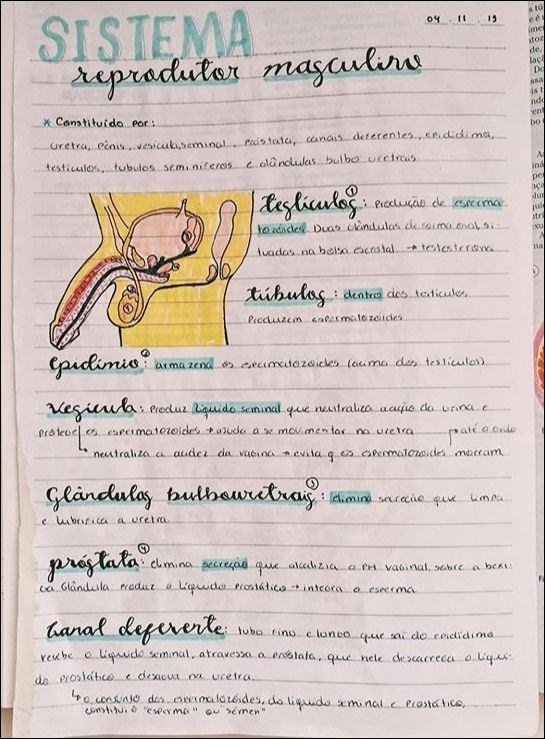 04 . 11 . 19
SISTEMA
reprodutor masculino
* Constituído por:
uretra, Pênis, vesícula, seminal, próstata, canais deferentes, epidídima,
testículos, tubulos seminíferos e glândulas bulbo uretrais
testículos ① : Produção de esperma-
tozóides. Duas glândulas de forma oval, si-
tuadas na bolsa escrotal. → testosterona
túbulos : dentro dos testículos
Produzem espermatozoides
epidímio ② : armazena os espermatozoides (acima dos testículos)
Vesícula : Produz líquido seminal que neutraliza a ação da urina e
protege os espermatozoides → ajuda a se movimentar na uretra
→ até o óvulo
neutraliza a acidez da vagina → evita q os espermatozoides morram
Glândulas bulbouretrais ③ : elimina secreção que limpa
e lubrifica a uretra
próstata ④ : elimina secreção que alcaliza o PH vaginal. sobre a bexi-
ga. Glândula produz o líquido prostático → integra o esperma
Canal deferente : tubo fino e longo que sai do epidídima
recebe o líquido seminal, atravessa a próstata, que nele descarrega o líqui-
do prostático e desagua na uretra.
↳ o conjunto dos espermatozóides, do líquido seminal e prostático,
constitui o "esperma" ou "sêmen"